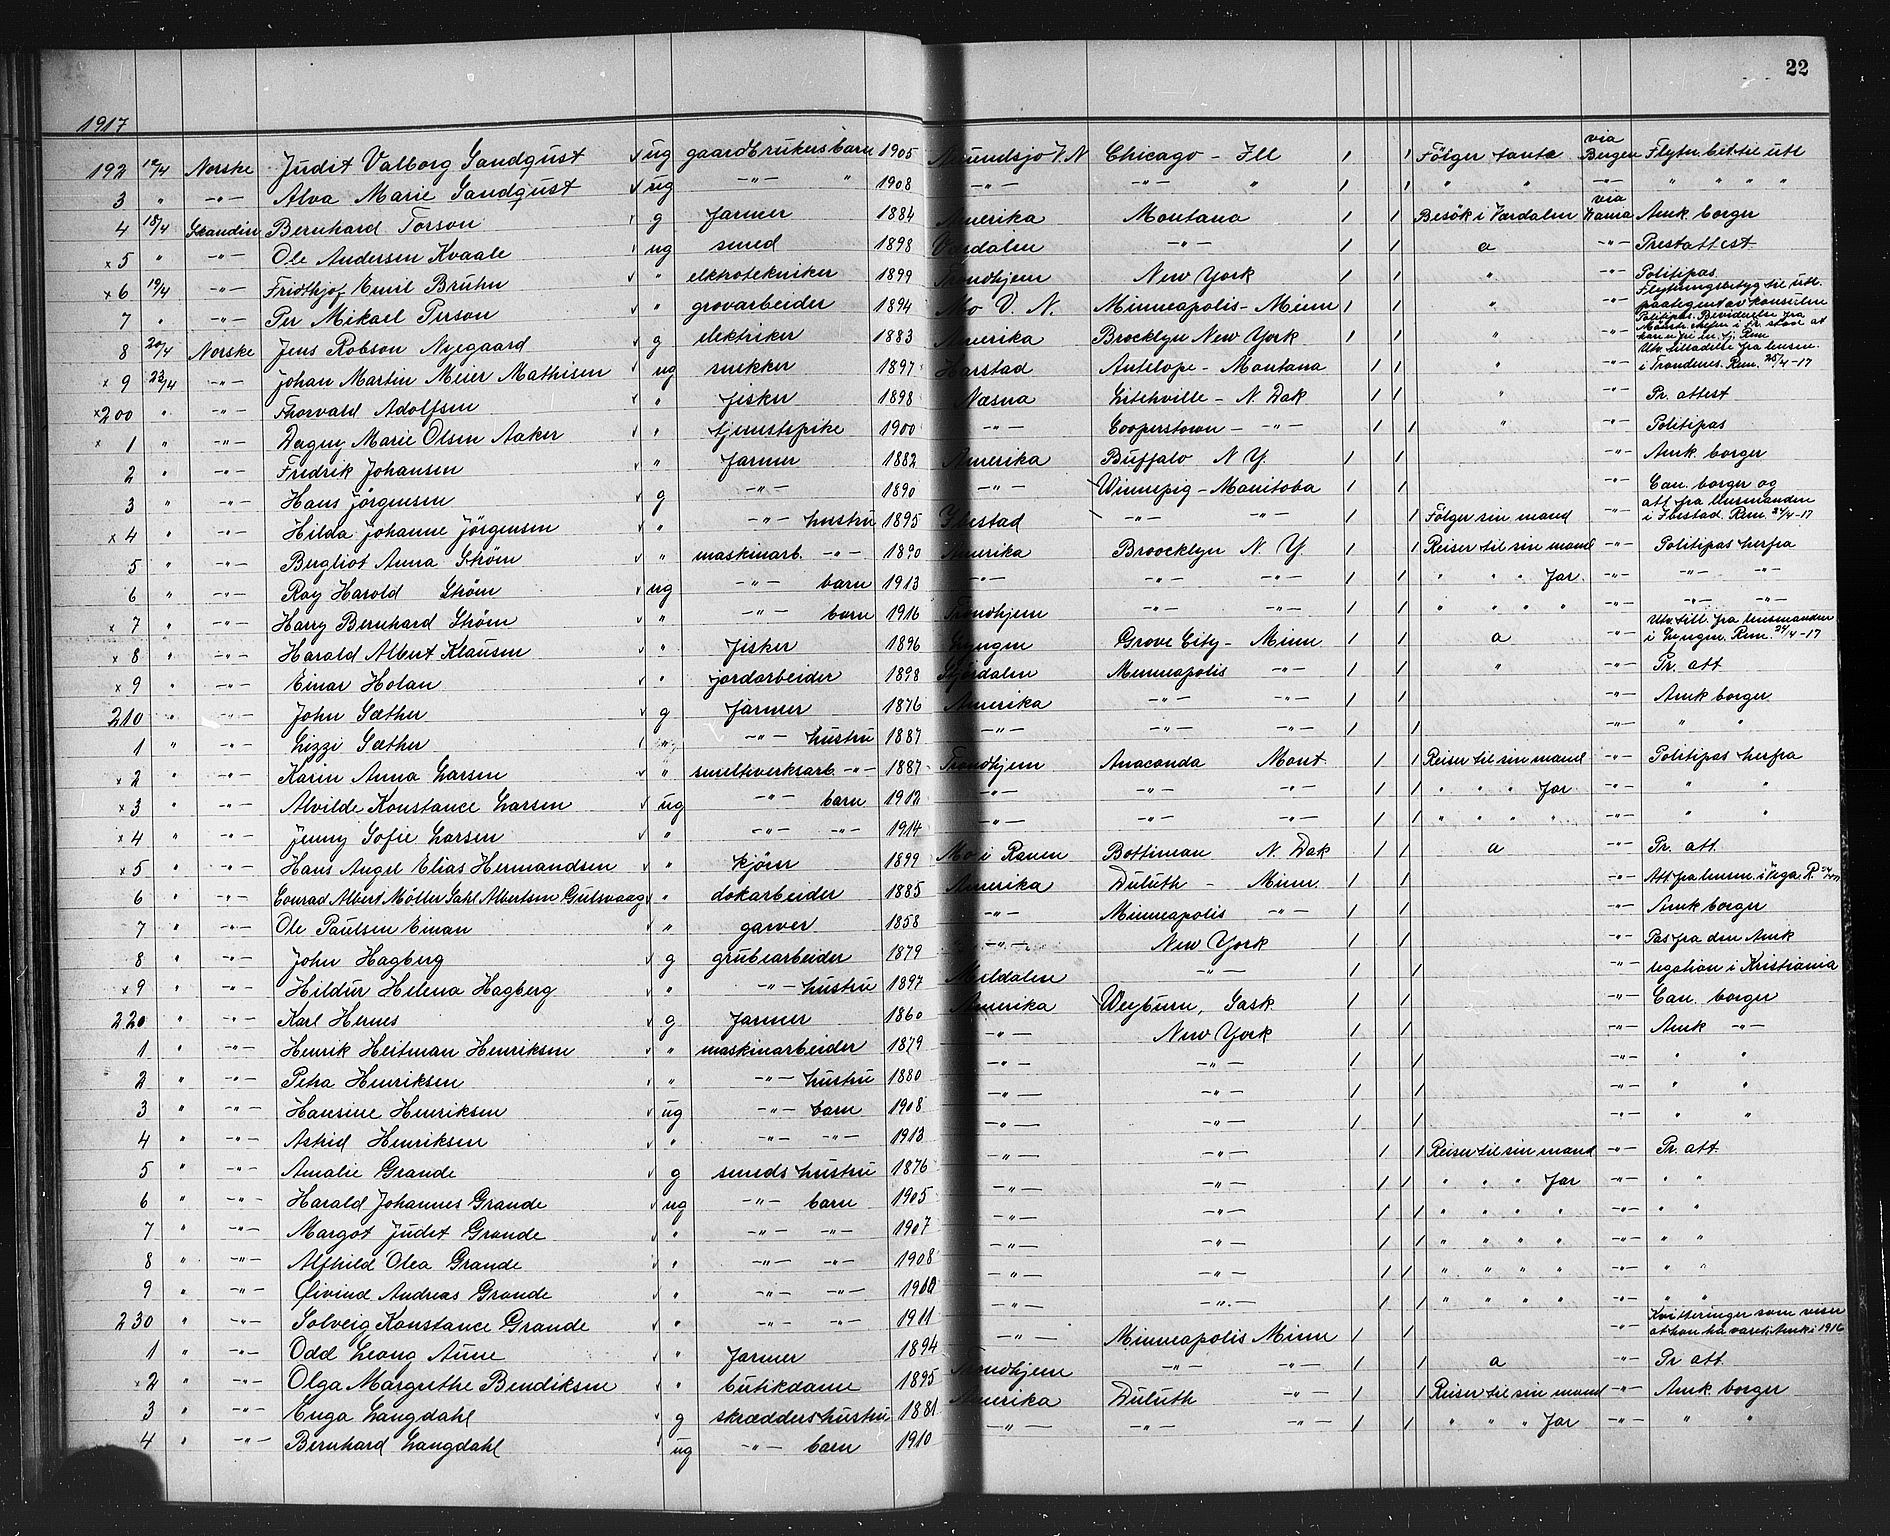 22
1917
192 12/4 Norske Judit Valborg Sandqust ug gaardbrukers barn 1905 V.N Chicago - Ill 1 1 Fölger tante via Bergen Flytn. bet. til utl
3 " -"- Alva Marie Sandqust ug -"- " 1908 -"- -"- " 1 1 " " -"- " " " "
4 18/4 Skandin Bernhard Torson g farmer 1884 Amerika Montana 1 1 Besök i Værdalen via Amk borger
x5 " -"- Ole Andersen Kvaale ug smed 1898 Værdalen -"- 1 1 a -"- Prestattest
x6 19/4 -"- Fridthjof Emil Bruhn " elektrotekniker 1899 Trondhjem New York 1 1 " -"- Politipas
7 " -"- Per Mikael Person " grovarbeider 1894 Mo V. N. Minneapolis - Minn 1 1 " -"- Flytningsbetyg til utl. paategnet av konsulen
8 20/4 Norske Jens Robson Nyegaard g elektriker 1883 Amerika Brocklyn New York 1 1 " -"- Politipas. Bevidnelse fra
x9 23/4 -"- Johan Martin Meier Mathisen ug snekker 1897 Harstad Antelope - Montana 1 1 " -"- Utv. tilladelse fra lensm. i Trondenes. Rem. 25/4-17
x200 " -"- Thorvald Adolfsen " fisker 1898 Næsna Litchville - N. Dak 1 1 " -"- Pr. attest
x1 " -"- Dagny Marie Olsen Aaker " tjenestepike 1900 -"- Cooperstown - -"- 1 1 " -"- Politipas
2 " -"- Fredrik Johansen " farmer 1882 Amerika Buffalo N Y. 1 1 -"- Amk. borger
3 " -"- Hans Jörgensen g -"- 1890 -"- Winnepig - Manitoba 1 1 -"- Can. borger og
x4 " -"- Hilda Johanne Jörgensen " -"- hustru 1895 Ibestad -"- -"- 1 1 Fölger sin mand -"- att. fra lensmanden i Ibestad Rem. 24/4-17
5 " -"- Bergliot Anna Ström " maskinarb. -"- 1890 Amerika Broocklyn N. Y. 1 1 Reiser til sin mand -"- Politipas herfra
6 " -"- Ray Harold Ström ug -"- barn 1913 -"- -"- -"- 1 1 " " " far. -"- -"- -"-
x7 " -"- Harry Bernhard Ström " -"- barn 1916 Trondhjem -"- -"- 1 1 " " " " -"- -"- -"-
x8 " -"- Harald Albert Klausen " fisker 1896 Lyngen Grove City - Minn 1 1 a -"- Utv. till. fra lensmanden i Lyngen. Rem. 24/4-17
x9 " -"- Einar Holan " jordarbeider 1898 Stjørdalen Minneapolis -"- 1 1 " -"- Pr. att
210 " -"- John Sæther g farmer 1876 Amerika -"- -"- 1 1 -"- Amk borger.
1 " -"- Lizzi Sæther " -"- hustru 1887 -"- -"- -"- 1 1 -"- " "
x2 " -"- Karin Anna Larsen " smelteverksarb. -"- 1887 Trondhjem Anaconda Mont 1 1 Reiser til sin mand -"- Politipas herfra
x3 " -"- Alvilde Konstance Larsen ug -"- barn 1912 -"- -"- -"- 1 1 " " " far -"- " "
x4 " -"- Jenny Sofie Larsen " -"- -"- 1914 -"- -"- -"- 1 1 " " " " -"- " "
x5 " -"- Hans Angel Elias Hermandsen " kjörer 1899 Mo i Ranen Bottiman N. Dak 1 1 a -"- Pr. att.
6 " -"- Conrad Albert Möller Dahl Albertsen Gulsvaag " dokarbeider 1885 Amerika Duluth - Minn. 1 1 -"- Att. fra lensm. i Vega R.
7 " -"- Ole Paulsen Einan " garver 1858 -"- Minneapolis -"- 1 1 -"- Amk borger
8 " -"- John Hagberg g grubearbeider 1879 -"- New York 1 1 -"- Pas fra den Amk
x9 " -"- Hildur Helena Hagberg " -"- hustru 1897 Meldalen -"- 1 1 -"- legation i Kristiania
220 " -"- Karl Hernes g farmer 1860 Amerika Weyburn, Sask. 1 1 -"- Can. borger
1 " -"- Henrik Heitman Henriksen " maskinarbeider 1879 -"- New York 1 1 -"- Amk -"-
2 " -"- Petra Henriksen " -"- hustru 1880 -"- -"- 1 1 -"- " "
3 " -"- Hansine Henriksen ug -"- barn 1908 -"- -"- 1 1 -"- " "
4 " -"- Astrid Henriksen " -"- -"- 1913 -"- -"- 1 1 -"- " "
5 " -"- Amalie Grande g smeds hustru 1876 -"- -"- 1 1 Reiser til sin mand -"- Pr. att.
6 " -"- Harald Johannes Grande ug -"- barn 1905 -"- -"- 1 1 " " " far -"- " "
7 " -"- Margot Judit Grande " -"- -"- 1907 -"- -"- 1 1 " " " " -"- " "
8 " -"- Alfhild Olea Grande " -"- -"- 1908 -"- -"- 1 1 " " " " -"- " "
9 " -"- Øivind Andreas Grande " -"- -"- 1910 -"- -"- 1 1 " " " " -"- " "
230 " -"- Solveig Konstance Grande " -"- -"- 1911 -"- -"- 1 1 " " " " -"- " "
1 " -"- Odd Leang Aune " farmer 1894 -"- Minneapolis Minn 1 1 -"- Kvitteringer som viser at han har været i Amk i 1916
x2 " -"- Olga Margrethe Bendiksen " butikdame 1895 Trondhjem -"- -"- 1 1 a -"- Pr att.
3 " -"- Enga Langdahl g skrædders hustru 1881 Amerika Duluth -"- 1 1 Reiser til sin mand -"- Amk borger
4 " -"- Bernhard Langdahl ug -"- barn 1910 -"- -"- -"- 1 1 " " " far -"- " "